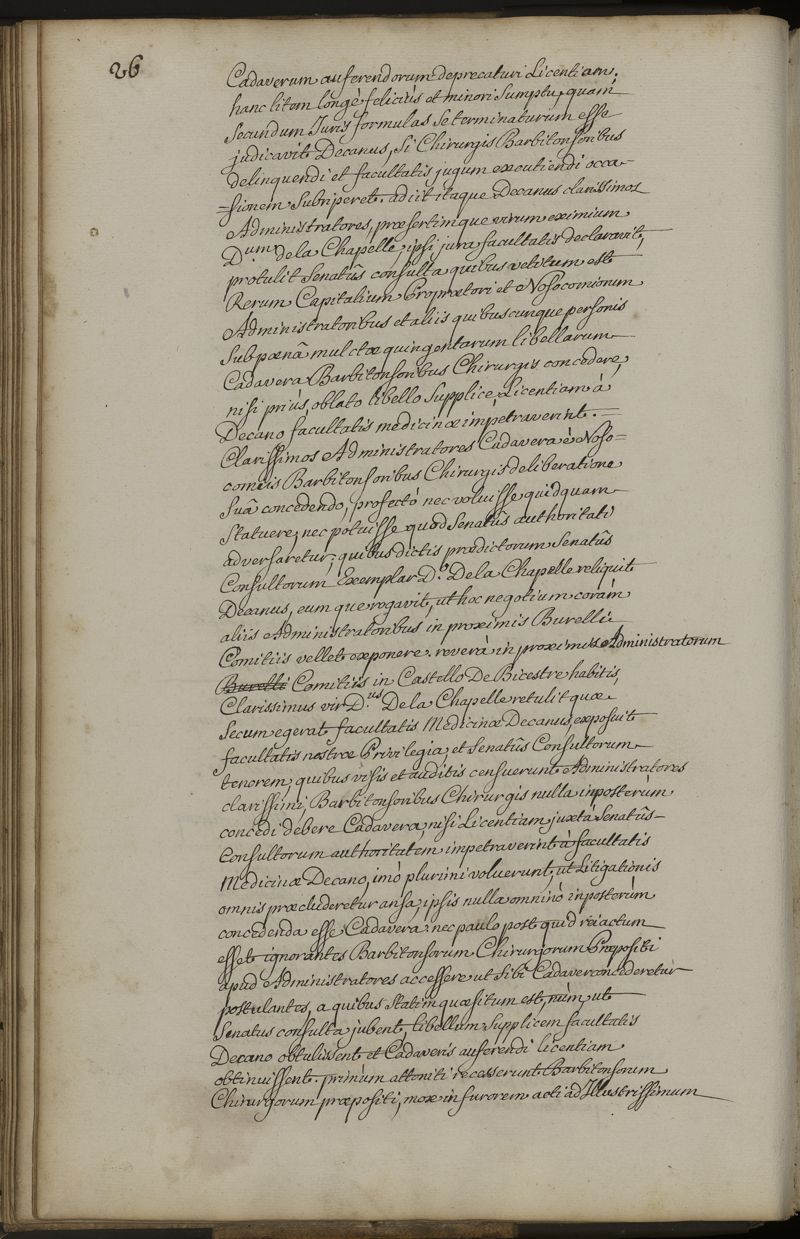 26
Cadaverum auferendorum deprecaturi Licentiam.
hanc litem longè feliciùs et minori Sumptu, quam
Secundum Juris formulas Se terminaturum esse
judicavit Decanus, Si Chirurgis Barbitonsoribus
delinquendi et facultatis jugum excutiendi occa-
=sionem Subriperet. adiit itaque Decanus clarissimos
Administratores, præsertimque virum eximium
D.um de la Chapelle, ipsi jura facultatis declaravit,
protulit Senatûs consulta quibus vetitum est
Rerum Capitalium Proprætori et Nosocomiorum
Administratoribus et aliis quibuscunque personis
Sub pœnâ mulctæ quingentarum libellarum
Cadavera Barbitonsoribus Chirurgis concedere,
nisi priùs, oblato libello Supplice, Licentiam à
Decano facultatis medicinæ impetraverint. =
Clarissimos Administratores Cadavera è Noso=
comiis Barbitonsoribus Chirurgis deliberatione
Suâ concedendo, profectó nec voluisse quidquam
Statuere, nec potuisse quod Senatûs authoritati
adversaretur; quibus dictis prædictorum Senatûs
Consultorum Exemplar D.o De la Chapelle reliquit
Decanus, eumque rogavit, ut hoc negotium coram
aliis Administratoribus in proximis Burelli
Comitiis vellet exponere. reverà in proximis Administratorum
Burelli Comitiis in Castello De Bicestre habitis,
Clarissimus vir D.us De la Chapelle retulit quæ
Secum egerat facultatis Medicinæ Decanus, exposuit
facultatis nostræ Privilegia, et Senatûs Consultorum
tenorem; quibus visis et auditis censuerunt Administratores
clarissimi, Barbitonsoribus Chirurgis nulla inposterùm
concedi debere Cadavera, nisi Licentiam juxtà Senatûs-
Consultorum authoritatem impetraverint à facultatis
Medicinæ Decano, imò plurimi voluerunt, ut Litigationis
omnis præcluderetur ansa, ipsis nulla omninò inposterùm
concedenda esse Cadavera. nec paulo post quid rei actum
esset ignorantes Barbitonsorum Chirurgorum Præpositi
apud Administratores accessere ut Sibi Cadaver concederetur
postulantes, a quibus Statim quæsitum est, nùm ut
Senatus consulta jubent, libellum Supplicem facultatis
Decano obtulissent et Cadaveris auferendi licentiam
obtinuissent. primùm attoniti recesserunt Barbitonsorum
Chirurgorum præpositi, mox in furorem acti ad Illustrissimum